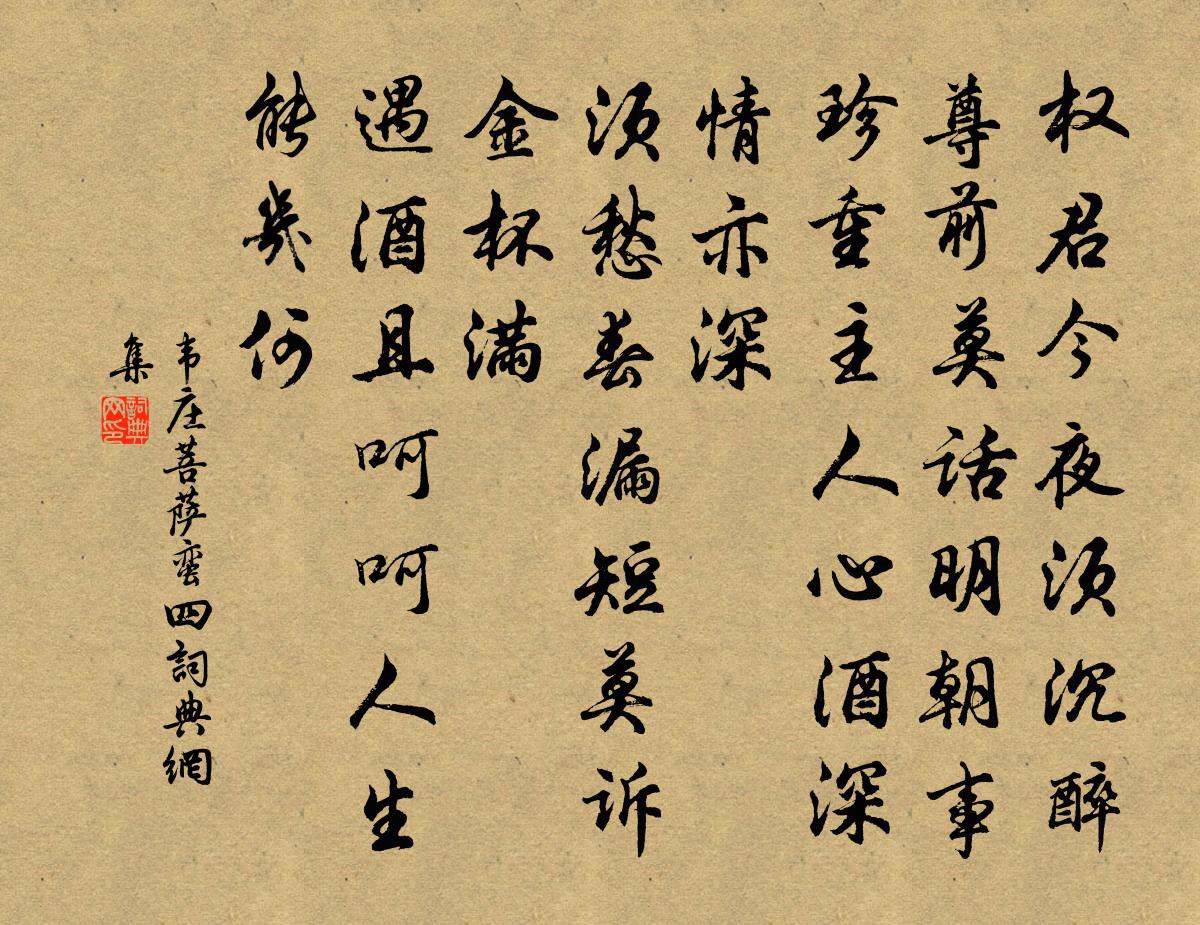 权君今夜须沉醉
尊前莫话明朝事
珍重主人心酒深
情亦深
须愁春漏短莫诉
金杯满
遇酒且呵呵人生
能几何
韦庄菩萨蛮四詞典網
集
詞典网印